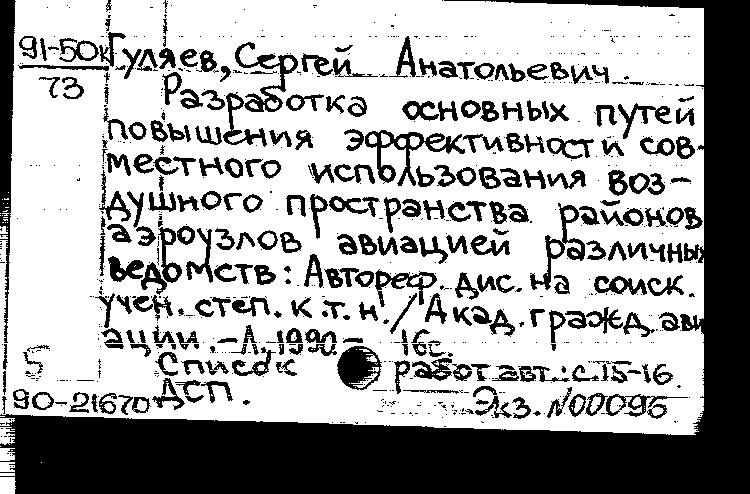 91-50к Гуляев, Сергей Анатольевич.
73
Разработка основных путей
повышения эффективности сов-
местного использования воз-
душного пространства районов
аэроузлов авиацией различных
ведомств: Автореф. дис. на соиск.
учен. степ. к.т.н. / Акад. гражд. ави
ации. - Л., 1990. - 16с.
5 Список работ авт.: с.15-16.
90-21670 ДСП. Экз. N00095